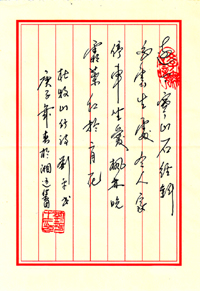 遠上寒山石徑斜
白雲生處有人家
停車坐愛楓林晚
霜葉紅於二月花
杜牧山行詩
庚子年 於湘